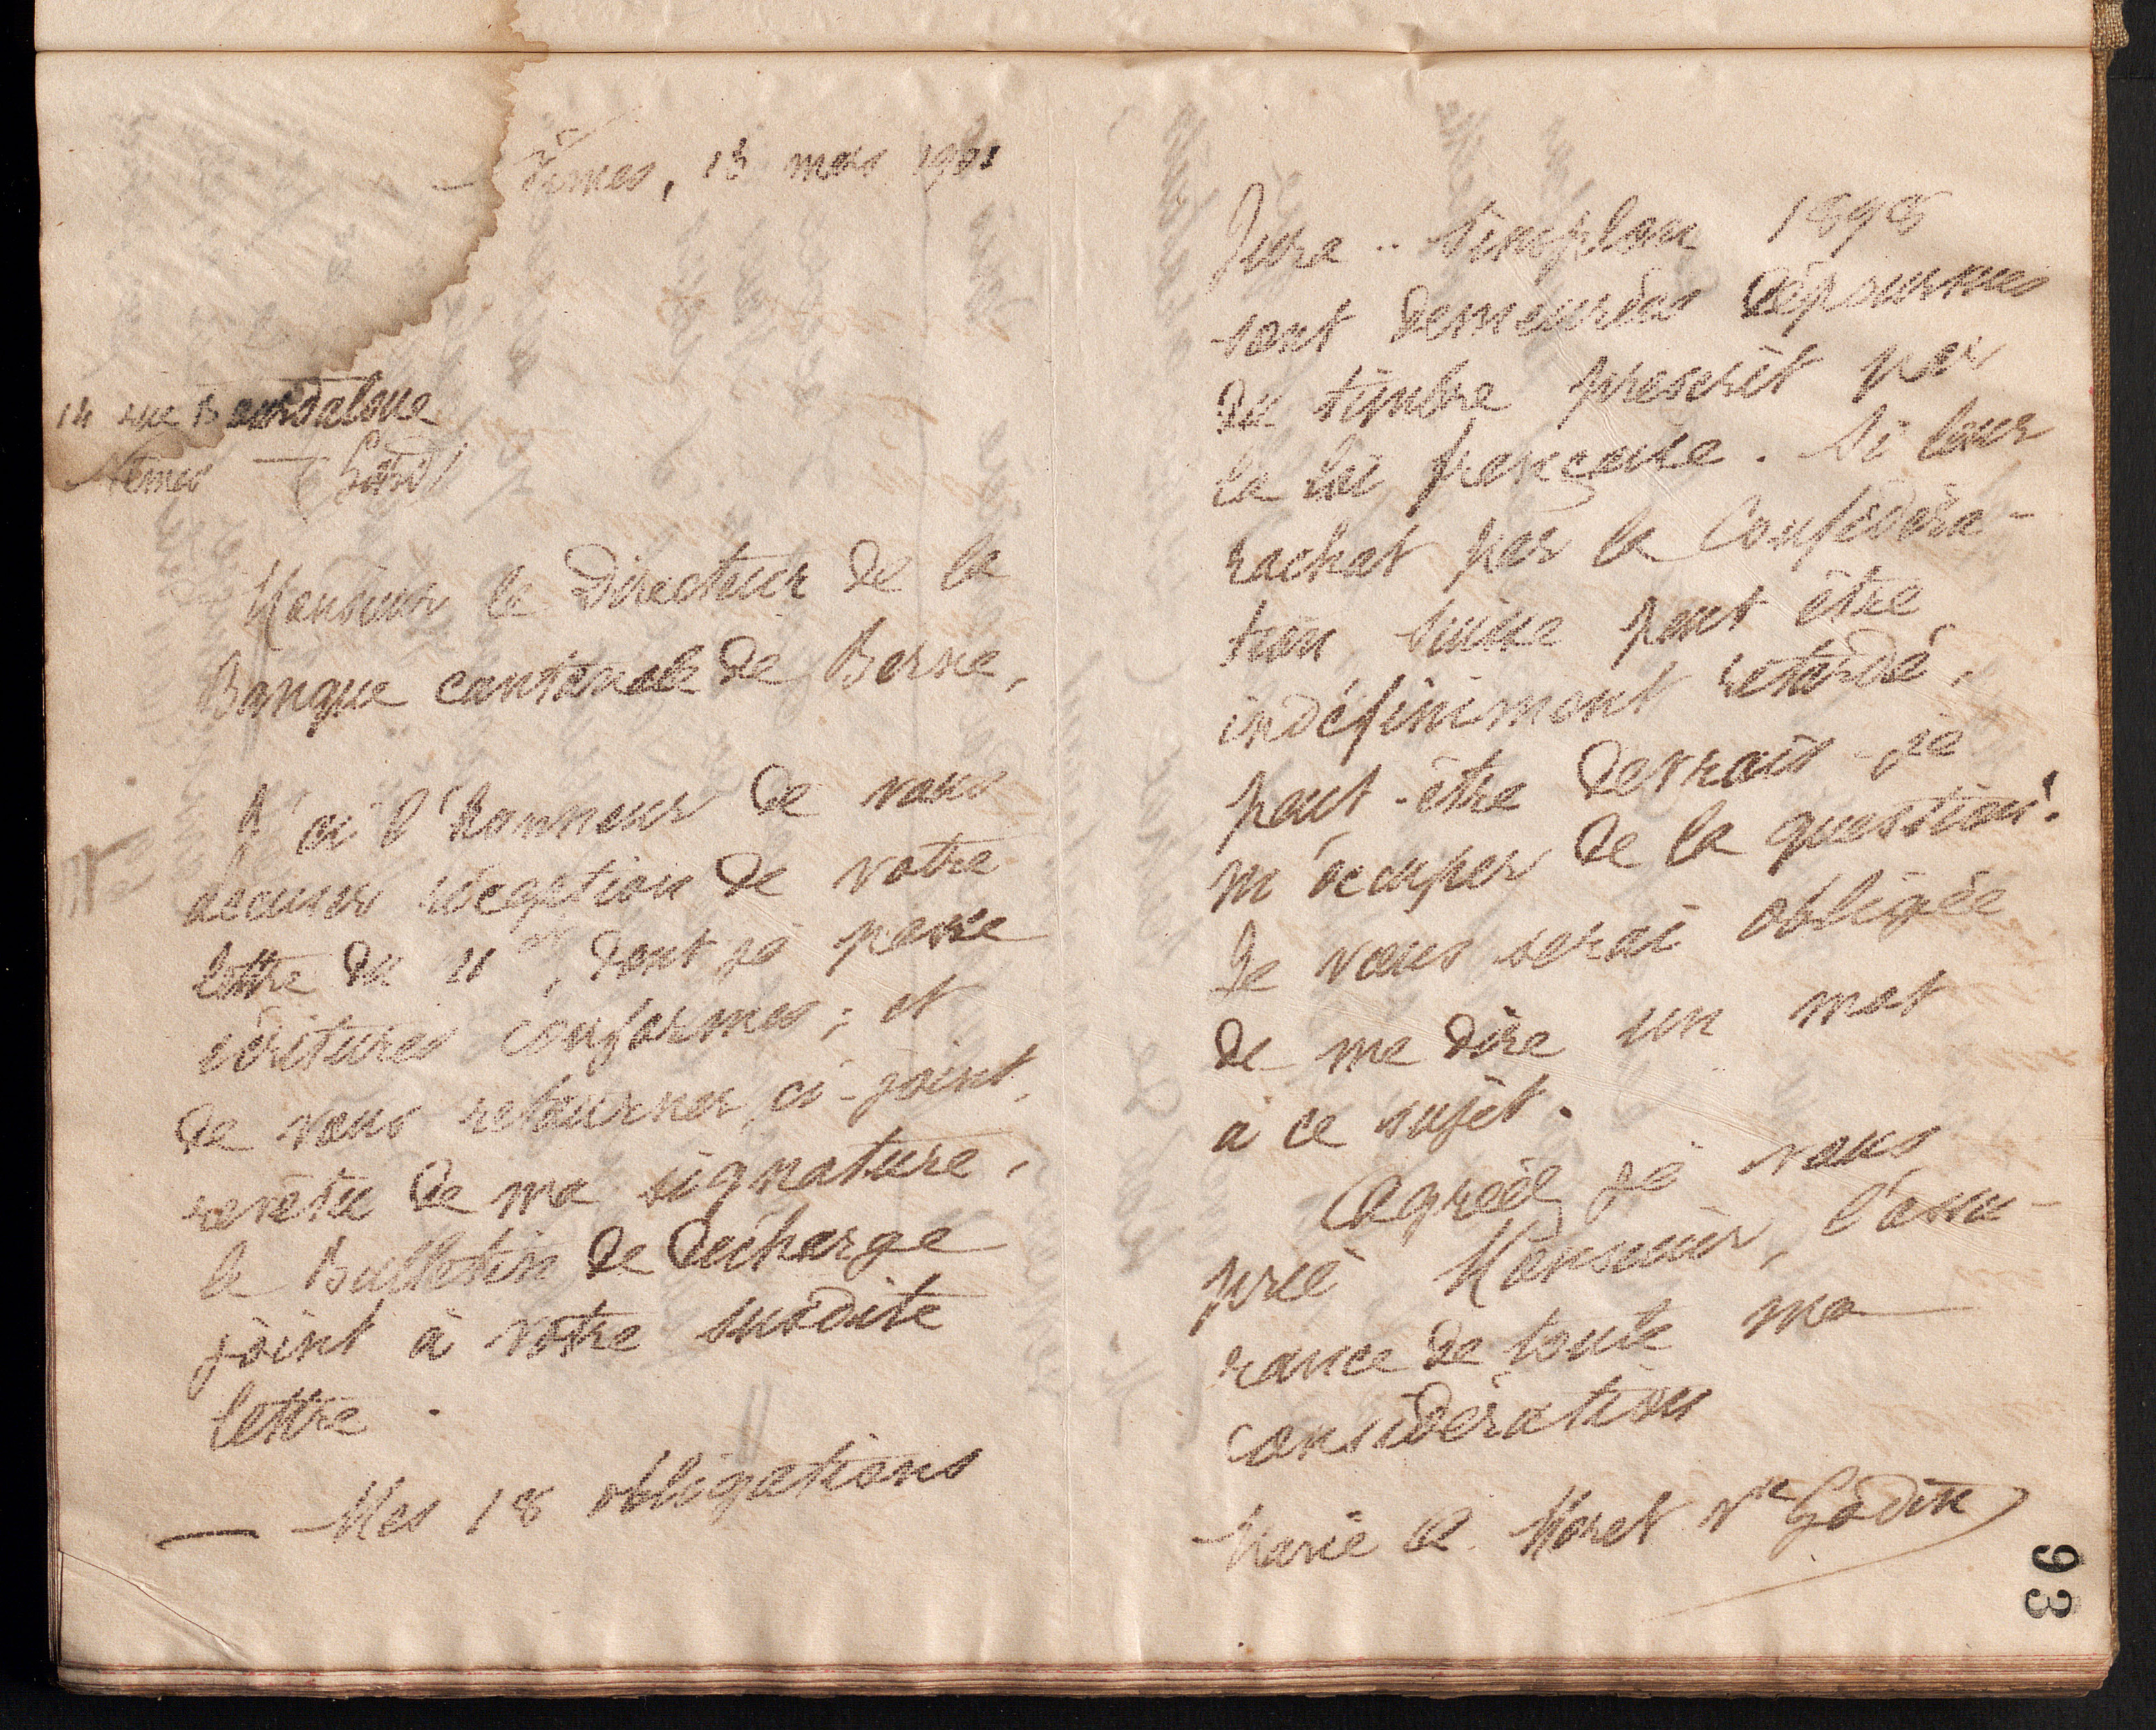 Nîmes, 13 mars 1901
14 rue Bourdaloue
Nîmes (Gard)
Monsieur le Directeur de la
Banque cantonale de Berne,
J'ai l'honneur de vous
accuser réception de votre
lettre du 11, dont je passe
écritures conformes ; et
de vous retourner ci-joint,
revêtu de ma signature,
le Bulletin de décharge
joint à votre susdite
lettre.
— Mes 18 obligations
Jura-Simplon 1898
sont demeurées dépourvues
du timbre prescrit par
la loi française. Si leur
rachat par la Confédéra-
tion Suisse peut être
indéfiniment retardé,
peut-être devrais-je
m'occuper de la question.
Je vous serai obligée
de me dire un mot
à ce sujet.
Agréez je vous
prie Monsieur, l'assu-
rance de toute ma
considération
Marie A. Moret Vve Godin
93